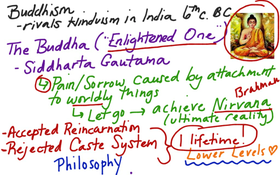 Buddhism
- rivals Hinduism in India 6th c. B.C.
The Buddha ("Enlightened One")
- Siddharta Gautama
↳ Pain/Sorrow caused by attachment
to worldly things
Brahman
↳ Let go → achieve Nirvana
(ultimate reality)
- Accepted Reincarnation
- Rejected Caste System
1 lifetime!
Lower Levels ♡
Philosophy